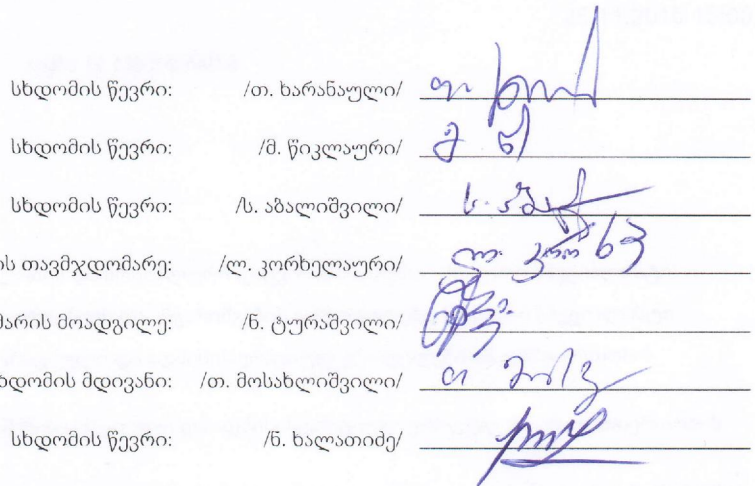 სხდომის წევრი: /თ. ხარანაული/
სხდომის წევრი: /მ. წიკლაური/
სხდომის წევრი: /ს. აბალიშვილი/
ის თავმჯდომარე: /ლ. კორხელაური/
მარის მოადგილე: /ნ. ტურაშვილი/
ხდომის მდივანი: /თ. მოსახლიშვილი/
სხდომის წევრი: /ნ. ხალათიძე/